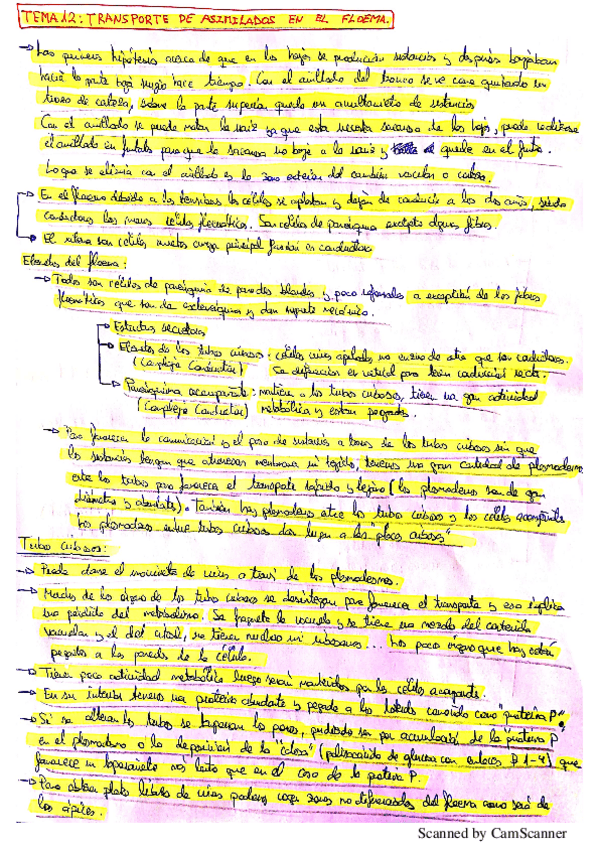 TEMA 12: TRANSPORTE DE ASIMILADOS EN EL FLOEMA.
→ Las primeras hipótesis acerca de que en las hojas se producían sustancias y después bajaban
hacia la parte baja surgió hace tiempo. Con el anillado del tronco se ve como quitando un
trozo de corteza, sobre la parte superior queda un amontonamiento de sustancias
Con el anillado se puede matar la raíz ya que esta necesita sacarosa de las hojas, puede realizarse
el anillado en frutales para que la sacarosa no baje a la raíz y quede en el fruto.
Lo que se elimina con el anillado es la zona exterior del cambium vascular o corteza.
→ En el floema debido a las tensiones las células se aplastan y dejan de conducir a los dos años, siendo
conductoras las nuevas células floemáticas. Son células de parénquima excepto algunas fibras.
→ El xilema son células muertas cuya principal función es conductora
Elementos del floema:
→ Todas son células de parénquima de paredes blandas y poco reforzadas a excepción de las fibras
floemáticas que son de esclerénquima y dan soporte mecánico.
→ Estructuras secretoras
→ Elementos de los tubos cribosos: células vivas apiladas una encima de otra que son conductoras.
(Complejo Conductor) Su disposición es vertical para tener conducción recta.
→ Parénquima acompañante: mantiene a los tubos cribosos, tienen una gran actividad
(Complejo Conductor) metabólica y están pegadas.
→ Para favorecer la comunicación y el paso de sustancias a través de los tubos cribosos sin que
las sustancias tengan que atravesar membrana ni tejido, tenemos una gran cantidad de plasmodesmos
entre los tubos para favorecer el transporte rápido y lejano (los plasmodesmos son de gran
diámetro y abundantes). También hay plasmodesmos entre los tubos cribosos y las células acompañantes
Los plasmodesmos entre tubos cribosos dan lugar a las "placas cribosas"
Tubos cribosos:
→ Puede darse el movimiento de virus a través de los plasmodesmos.
→ Muchos de los órganos de los tubos cribosos se desintegran para favorecer el transporte y eso implica
una pérdida del metabolismo. Se fragmenta la vacuola y se tiene una mezcla del contenido
vacuolar y el del citosol, no tienen núcleo ni ribosomas... Los pocos órganos que hay están
pegados a las paredes de la célula.
→ Tienen poca actividad metabólica luego serán mantenidos por la célula acompañante.
→ En su interior tenemos una proteína abundante y pegada a los laterales conocida como "proteína P".
→ Si se alteran los tubos se taparán los poros, pudiendo ser por acumulación de la "proteína P"
en el plasmodesmo o la deposición de la "calosa" (polisacárido de glucosa con enlaces β 1-4) que
favorece un taponamiento más lento que en el caso de la proteína P.
→ Para obtener plantas libres de virus podemos coger zonas no diferenciadas del floema como será de
los ápices.
Scanned by CamScanner